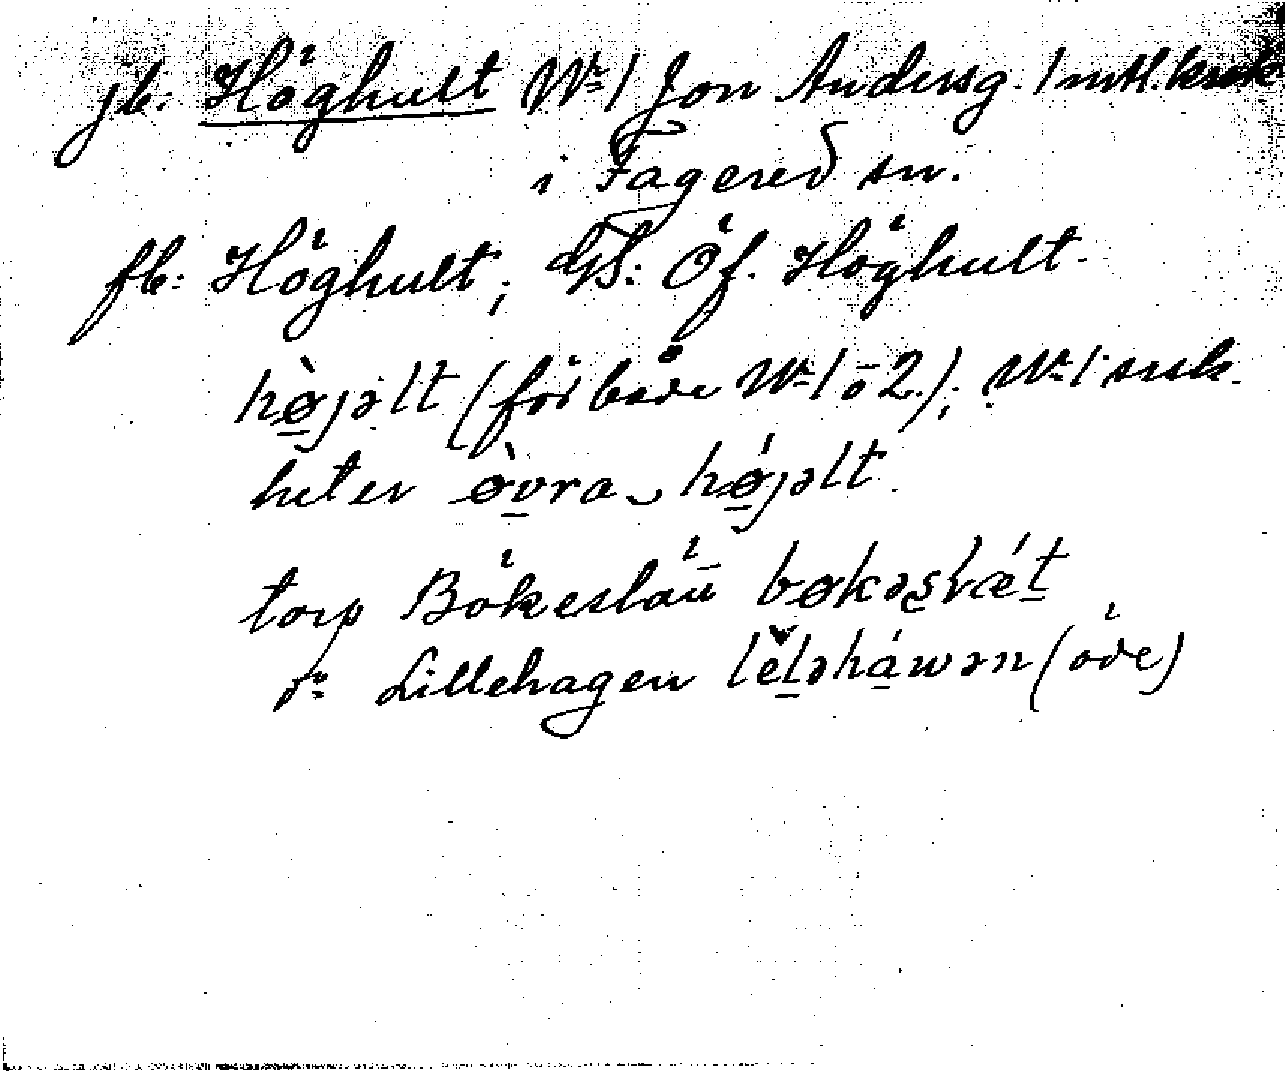 jb: Höghult Nr 1 Jon Andersg. 1 mtl. krsk.
i Fagered sn.
fb: Höghult; GS: Öf. Höghult.
hø̀jəlt (för både Nr 1 o 2.); Nr 1 ensk.
heter ø̀vra hǿjəlt.
torp Bökeslätt bøkəslǽt
do Lillehagen lĕləháwən (öde)